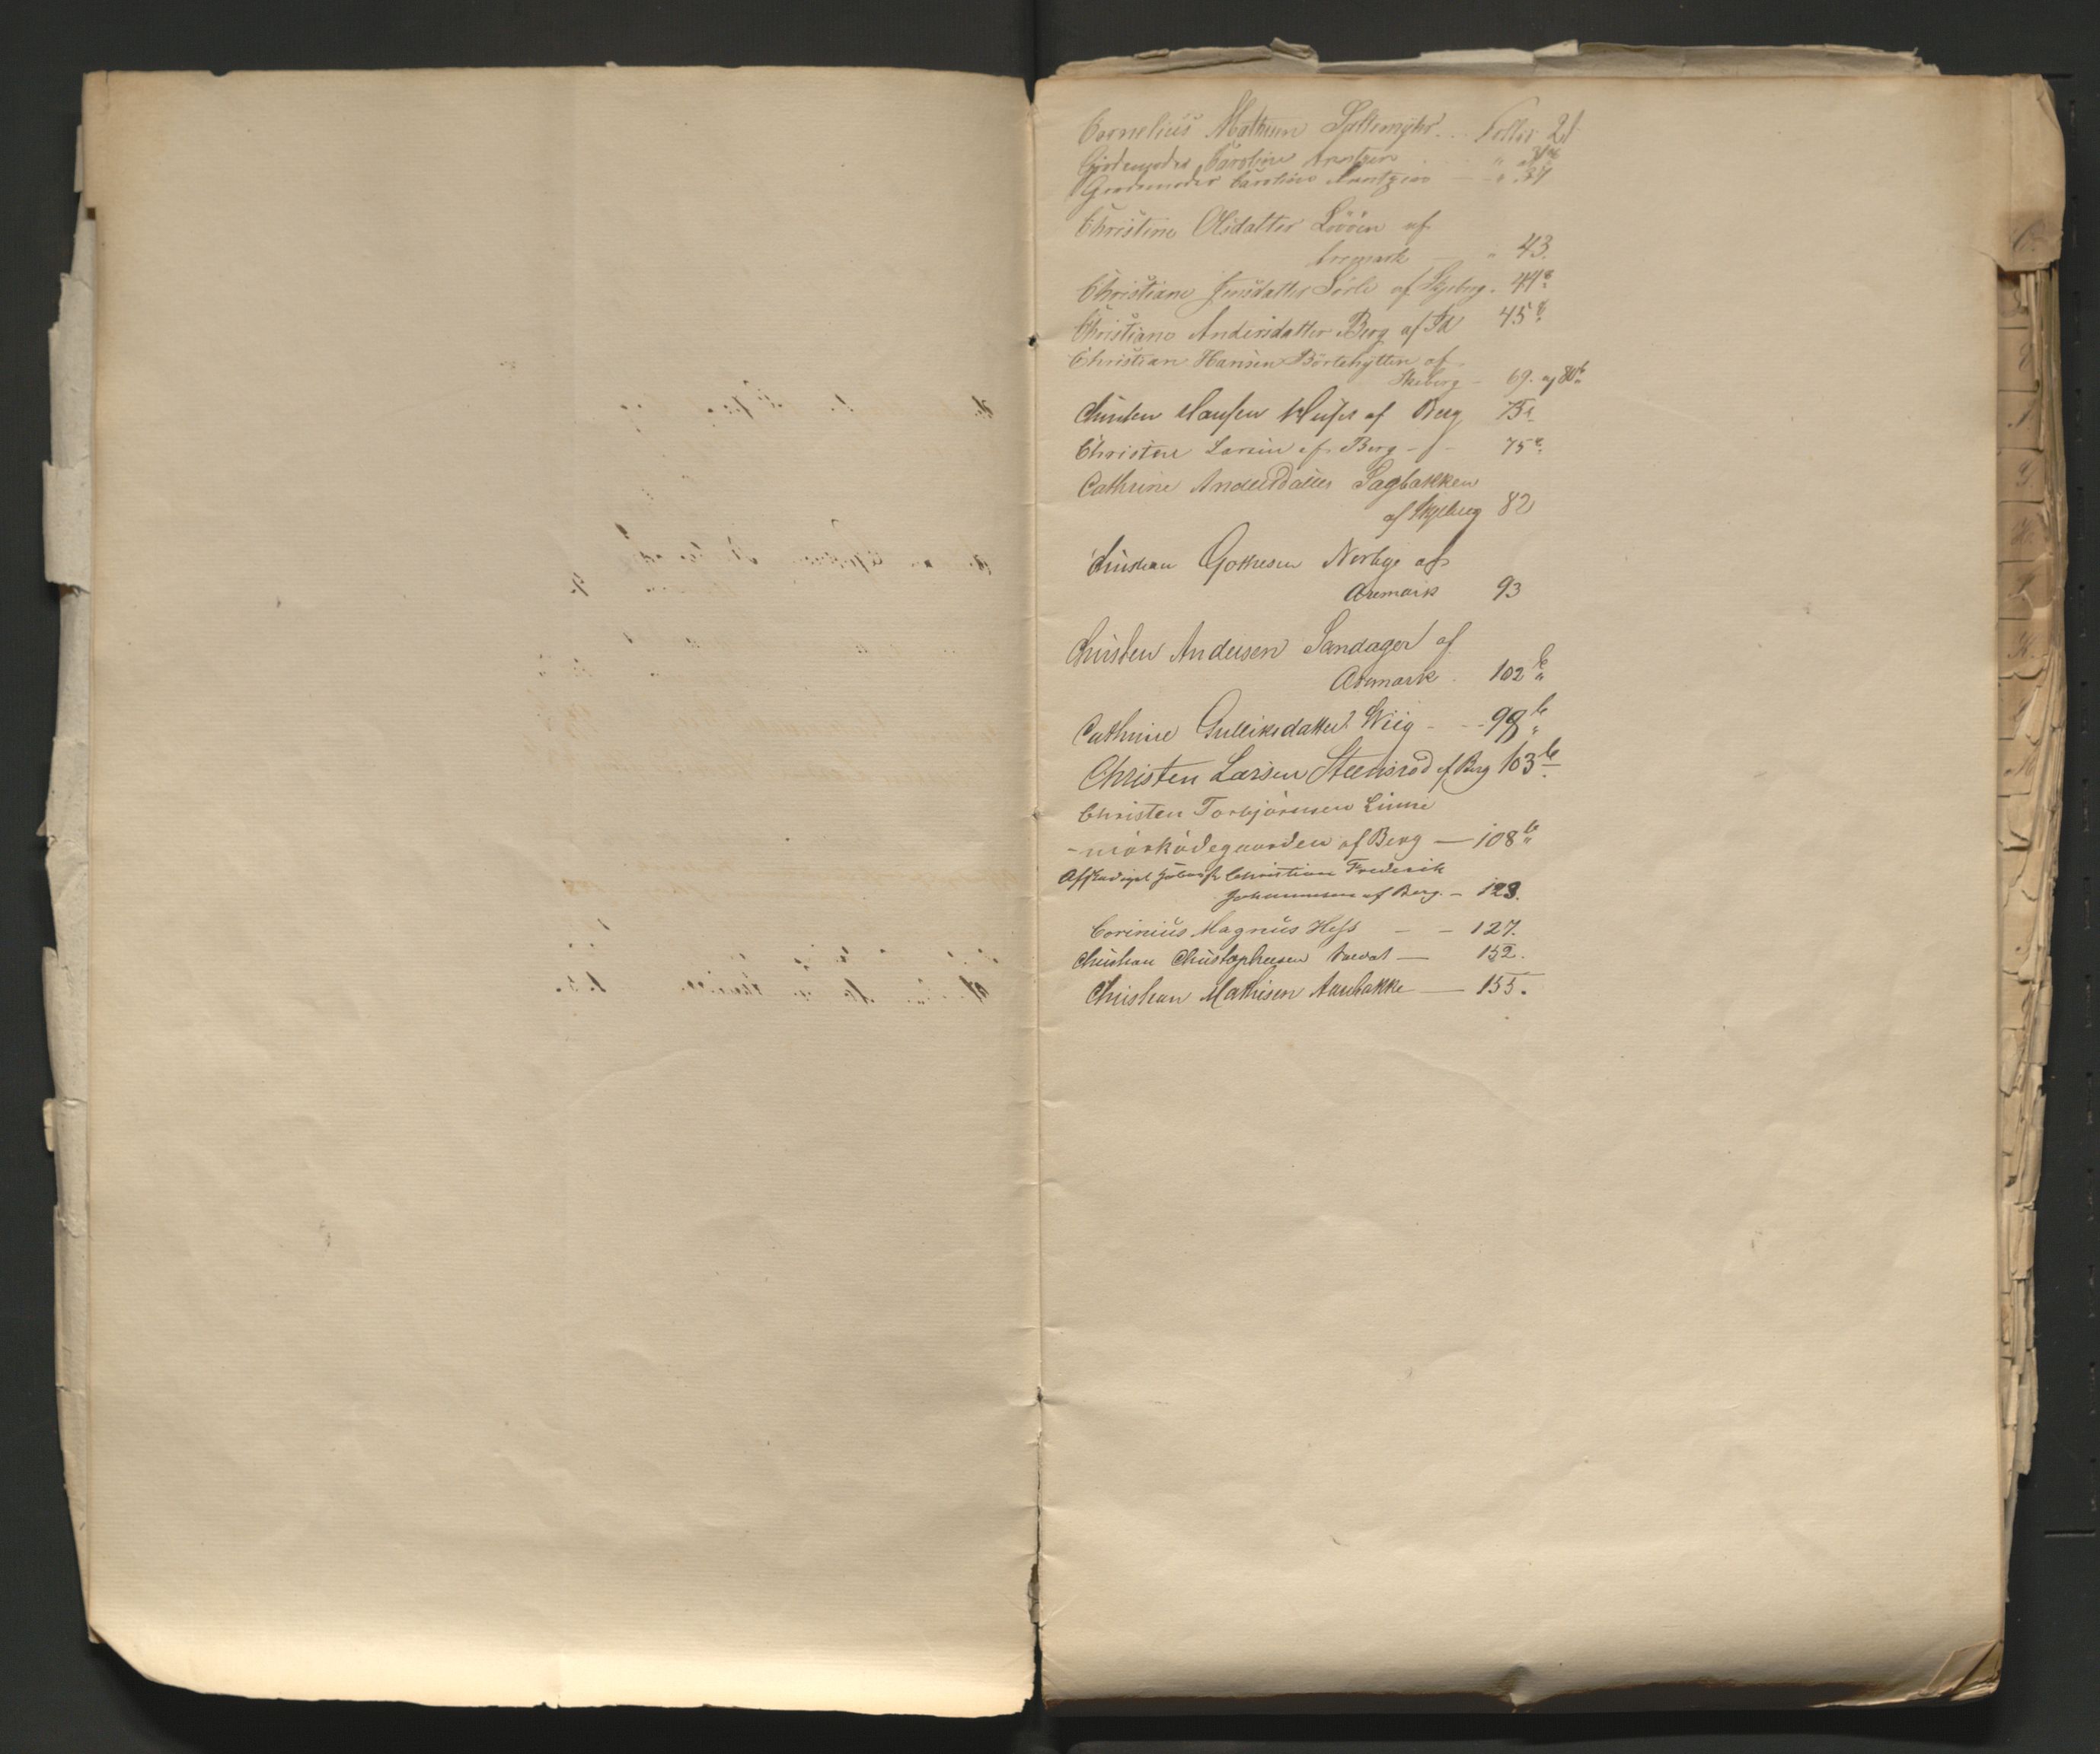 Cornelius Mathisen Saltemyhr . . Follio 21
Gjordemoder Caroline Arntzen
Gjordemoder Caroline Arntzen — " 37
Christine Olsdatter Lööen af
Aremark — " 43.
Christiane Jensdatter af Skjeberg. 44a
Christiane Andersdatter Berg af Id 45a
Christian Hansen Börtehytten af
Skeberg — 69. og 80b
Christen Hansen af Berg 73a
Christen Larsen af Berg — 75a
Cathrine Andersdatter Sagbakken
af Skjeberg 82
Christian Nordbye af
Aremark 93
Christen Andersen Sandager af
Aremark . 102b
Cathrine Gulliksdatter Wiig - - 98b
Christen Larsen Steensrød af Berg 103b
Christen Torbjörnsen Linne
-mörködegaarden af Berg — 108b
Afskediget Christian Frederik
Johannesen af Berg. — 123.
Corinius Magnus Hess — — 127.
Christian Christophersen — 152.
Christian Mathisen Aarebakke — 155.
C.